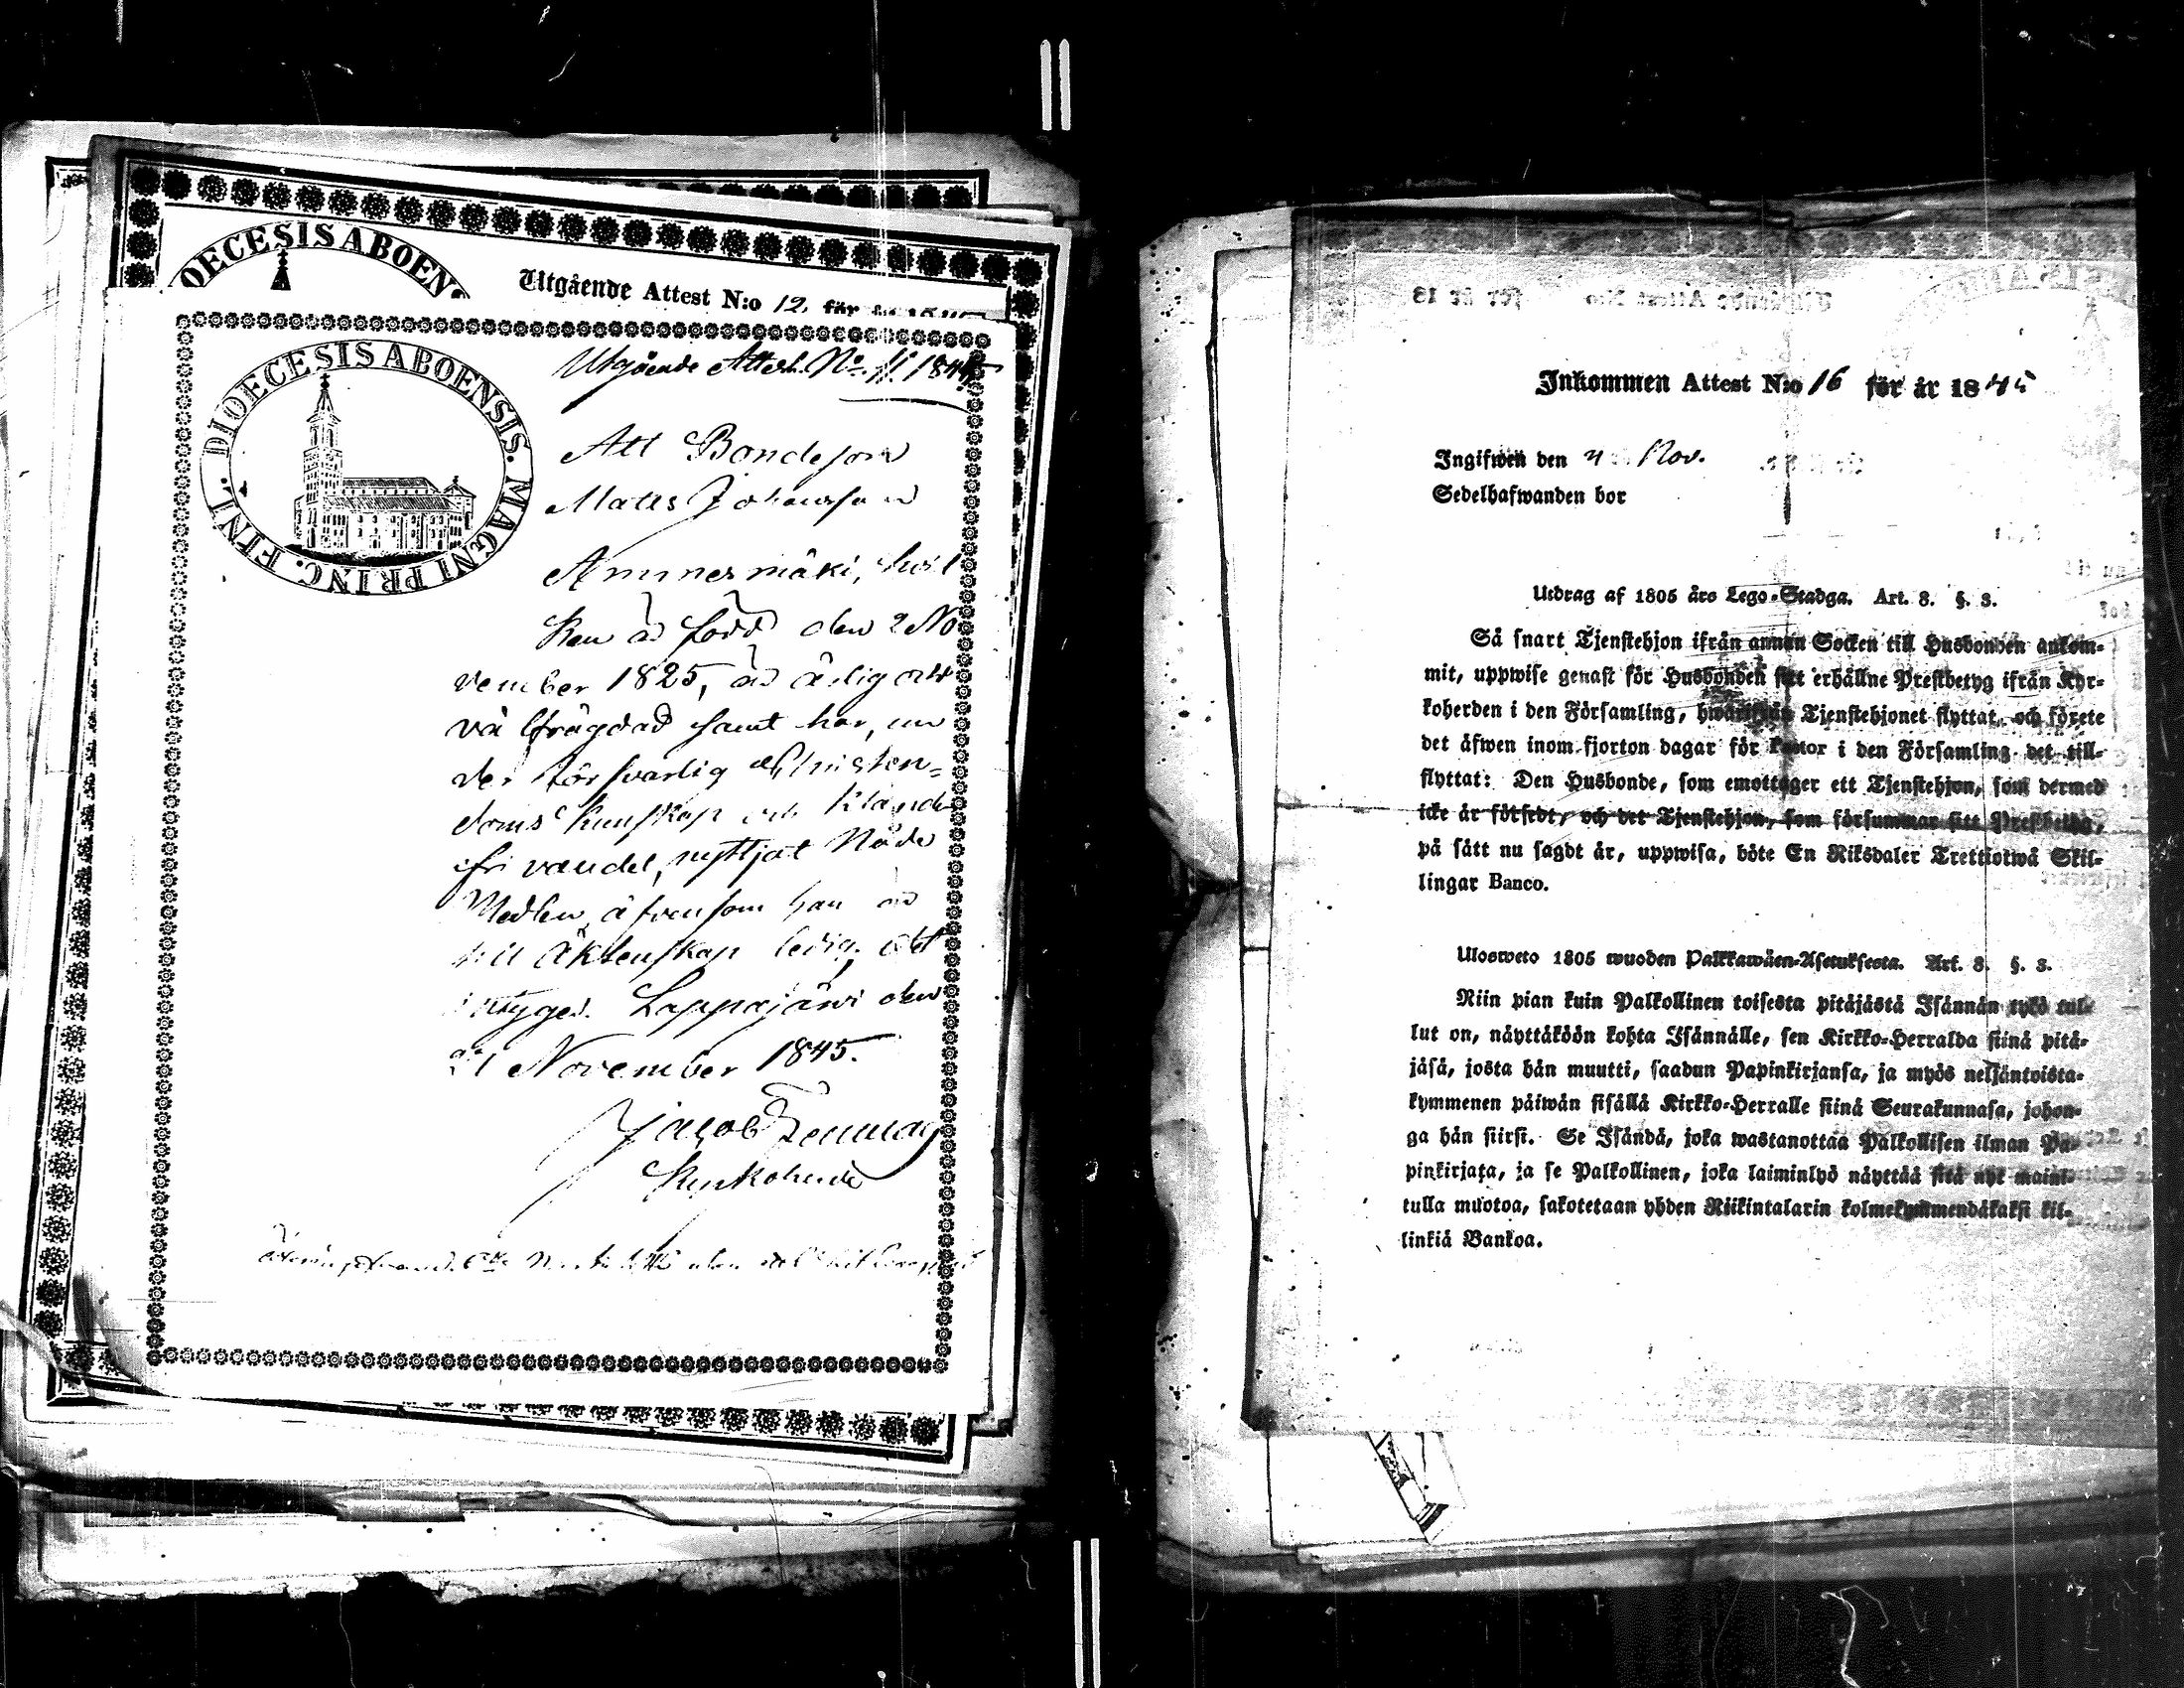 DIOECESIS ABOEN
Utgående Attest N:o 12. för år
Utgående Attest. No. 11. 1845
DIOECESIS ABOENSIS. MAGNI PRINC. FINL.
Att Bondeson
Matts Johansson
Ammesmäki, hvil
ken är född den 2 No
vember 1825, är ärlig och
välfrägdad samt har, un
der försvarlig Christen=
doms kunskap och klander
fri vandel, nyttjat Nåde
Medlen, äfvensom han är
till äktenskap ledig. Det
betygas. Lappajärvi den
21 November 1845.
Jacob
Kyrkoherde
Inkommen Attest N:o 16 för år 1845
Ingifwen den 4 Nov.
Sedelhafwanden bor
Utdrag af 1805 års Lego-Stadga. Art. 8. §. 3.
Så snart Tjenstehjon ifrån annan Socken till Husbonden ankom-
mit, uppwise genast för Husbonden sitt erhållne Prestbetyg ifrån Kyr-
koherden i den Församling, hwarifrån Tjenstehjonet flyttat, och förete
det äfwen inom fjorton dagar för Pastor i den Församling det till-
flyttat: Den Husbonde, som emottager ett Tjenstehjon, som dermed
icke är försedt, och det Tjenstehjon, som försummar sitt Prestbetyg,
på sätt nu sagdt är, uppwisa, böte En Riksdaler Trettiotwå Skil-
lingar Banco.
Ulosweto 1805 wuoden Palkkawäen-Asetuksesta. Art. 8. §. 3.
Niin pian kuin Palkollinen toisesta pitäjästä Isännän tykö tul-
lut on, näyttäköön kohta Isännälle, sen Kirkko-Herralda siinä pitä-
jäsä, josta hän muutti, saadun Papinkirjansa, ja myös neljäntoista-
kymmenen päiwän sisällä Kirkko-Herralle siinä Seurakunnasa, johon-
ga hän siirsi. Se Isändä, joka wastanottaa Palkollisen ilman Pa-
pinkirjata, ja se Palkollinen, joka laiminlyö näyttää sitä nyt maini-
tulla muotoa, sakotetaan yhden Riikintalarin kolmekymmendäkaksi kil-
linkiä Bankoa.